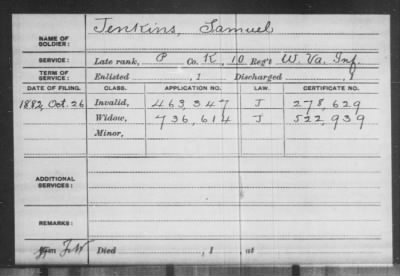 NAME OF SOLDIER: Jenkins, Samuel
SERVICE: Late rank, P Co. K, 10 Reg't W. Va. Inf.
TERM OF SERVICE: Enlisted , 1 Discharged , 1
DATE OF FILING. CLASS. APPLICATION NO. LAW. CERTIFICATE NO.
1882, Oct. 26 Invalid, 463,347 J 278,629
Widow, 736,614 J 522,939
Minor,
ADDITIONAL SERVICES:
REMARKS:
Died , 1 , at